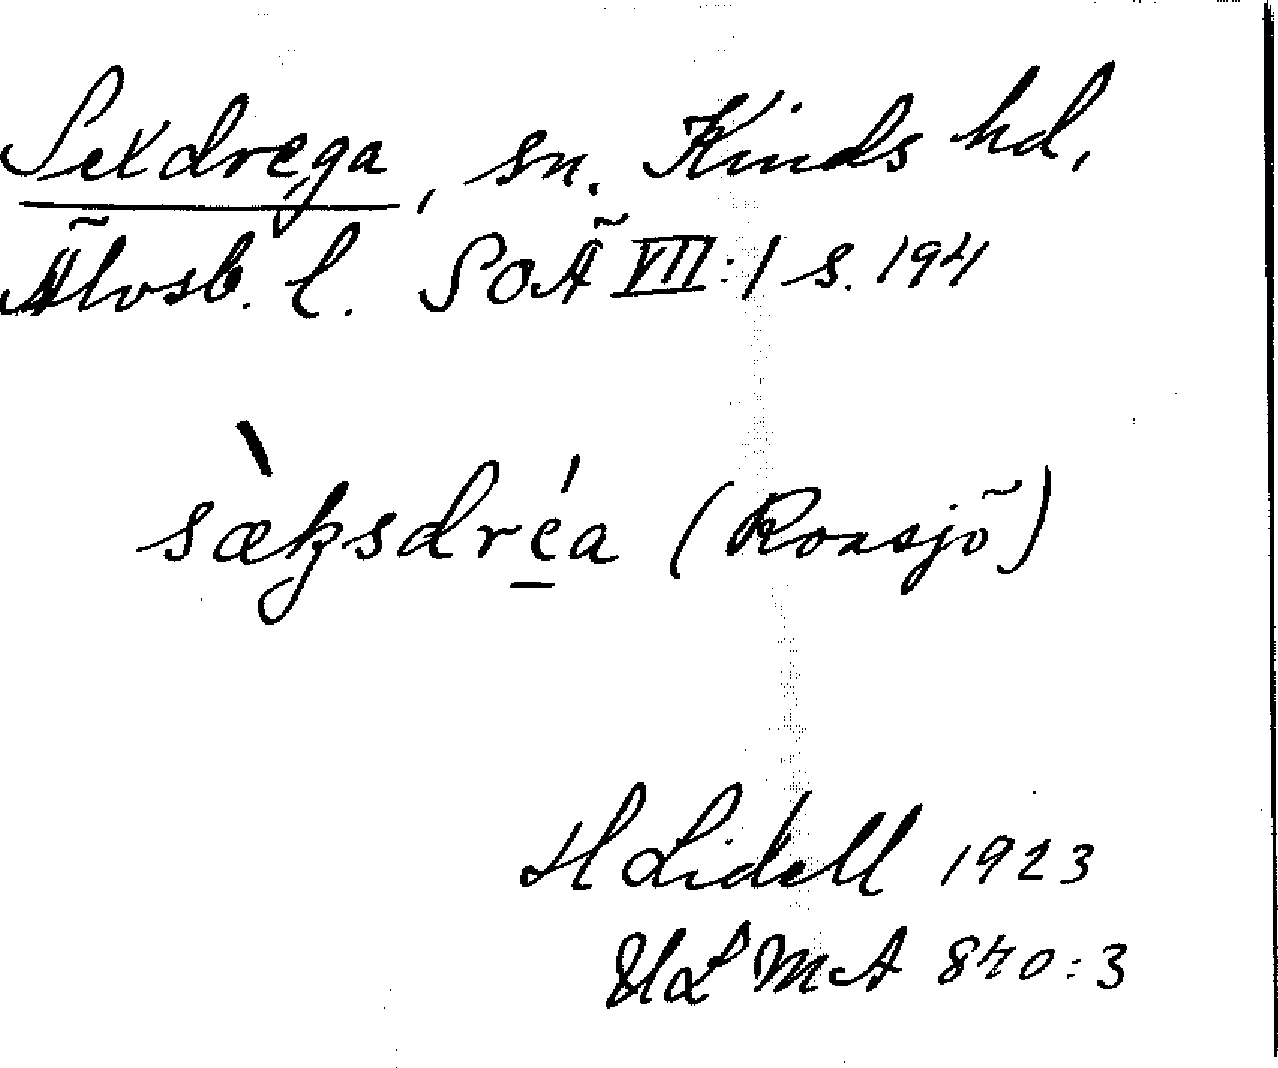 Sexdrega, sn. Kinds hd,
Älvsb. l. SOÄ VII:1 s. 194
sæksdréa (Roasjö)
H Lidell 1923
ULMA 840:3